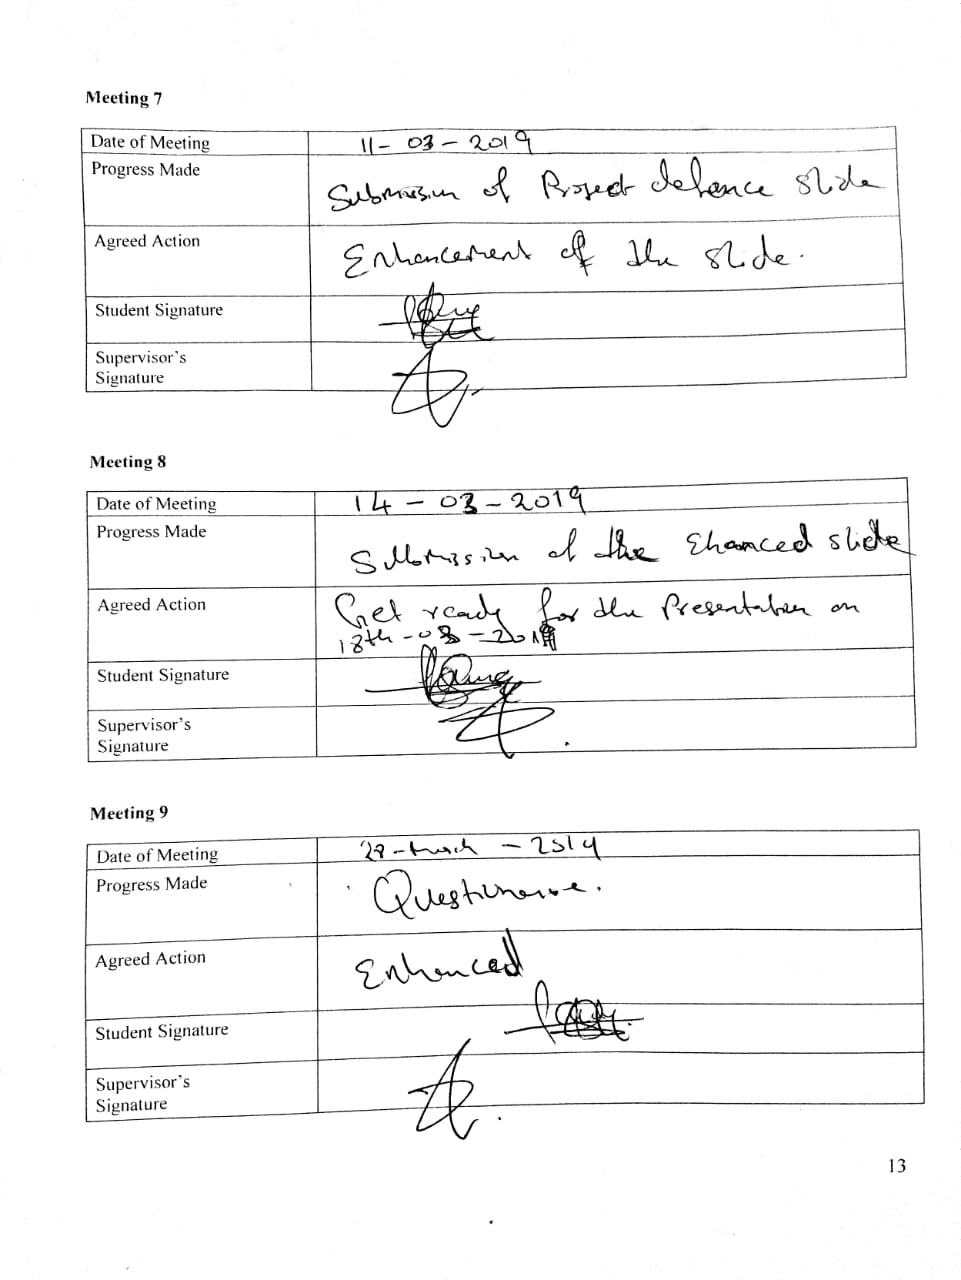 Meeting 7
Date of Meeting 11- 03 - 2019
Progress Made Submission of Project defence slide
Agreed Action Enhancement of the slide.
Student Signature
Supervisor's
Signature
Meeting 8
Date of Meeting 14 - 03 - 2019
Progress Made Submission of the Ehanced slide
Agreed Action Get ready for the Presentation on
18th - 03 - 2019
Student Signature
Supervisor's
Signature
Meeting 9
Date of Meeting
Progress Made
Agreed Action Enhanced
Student Signature
Supervisor's
Signature
13